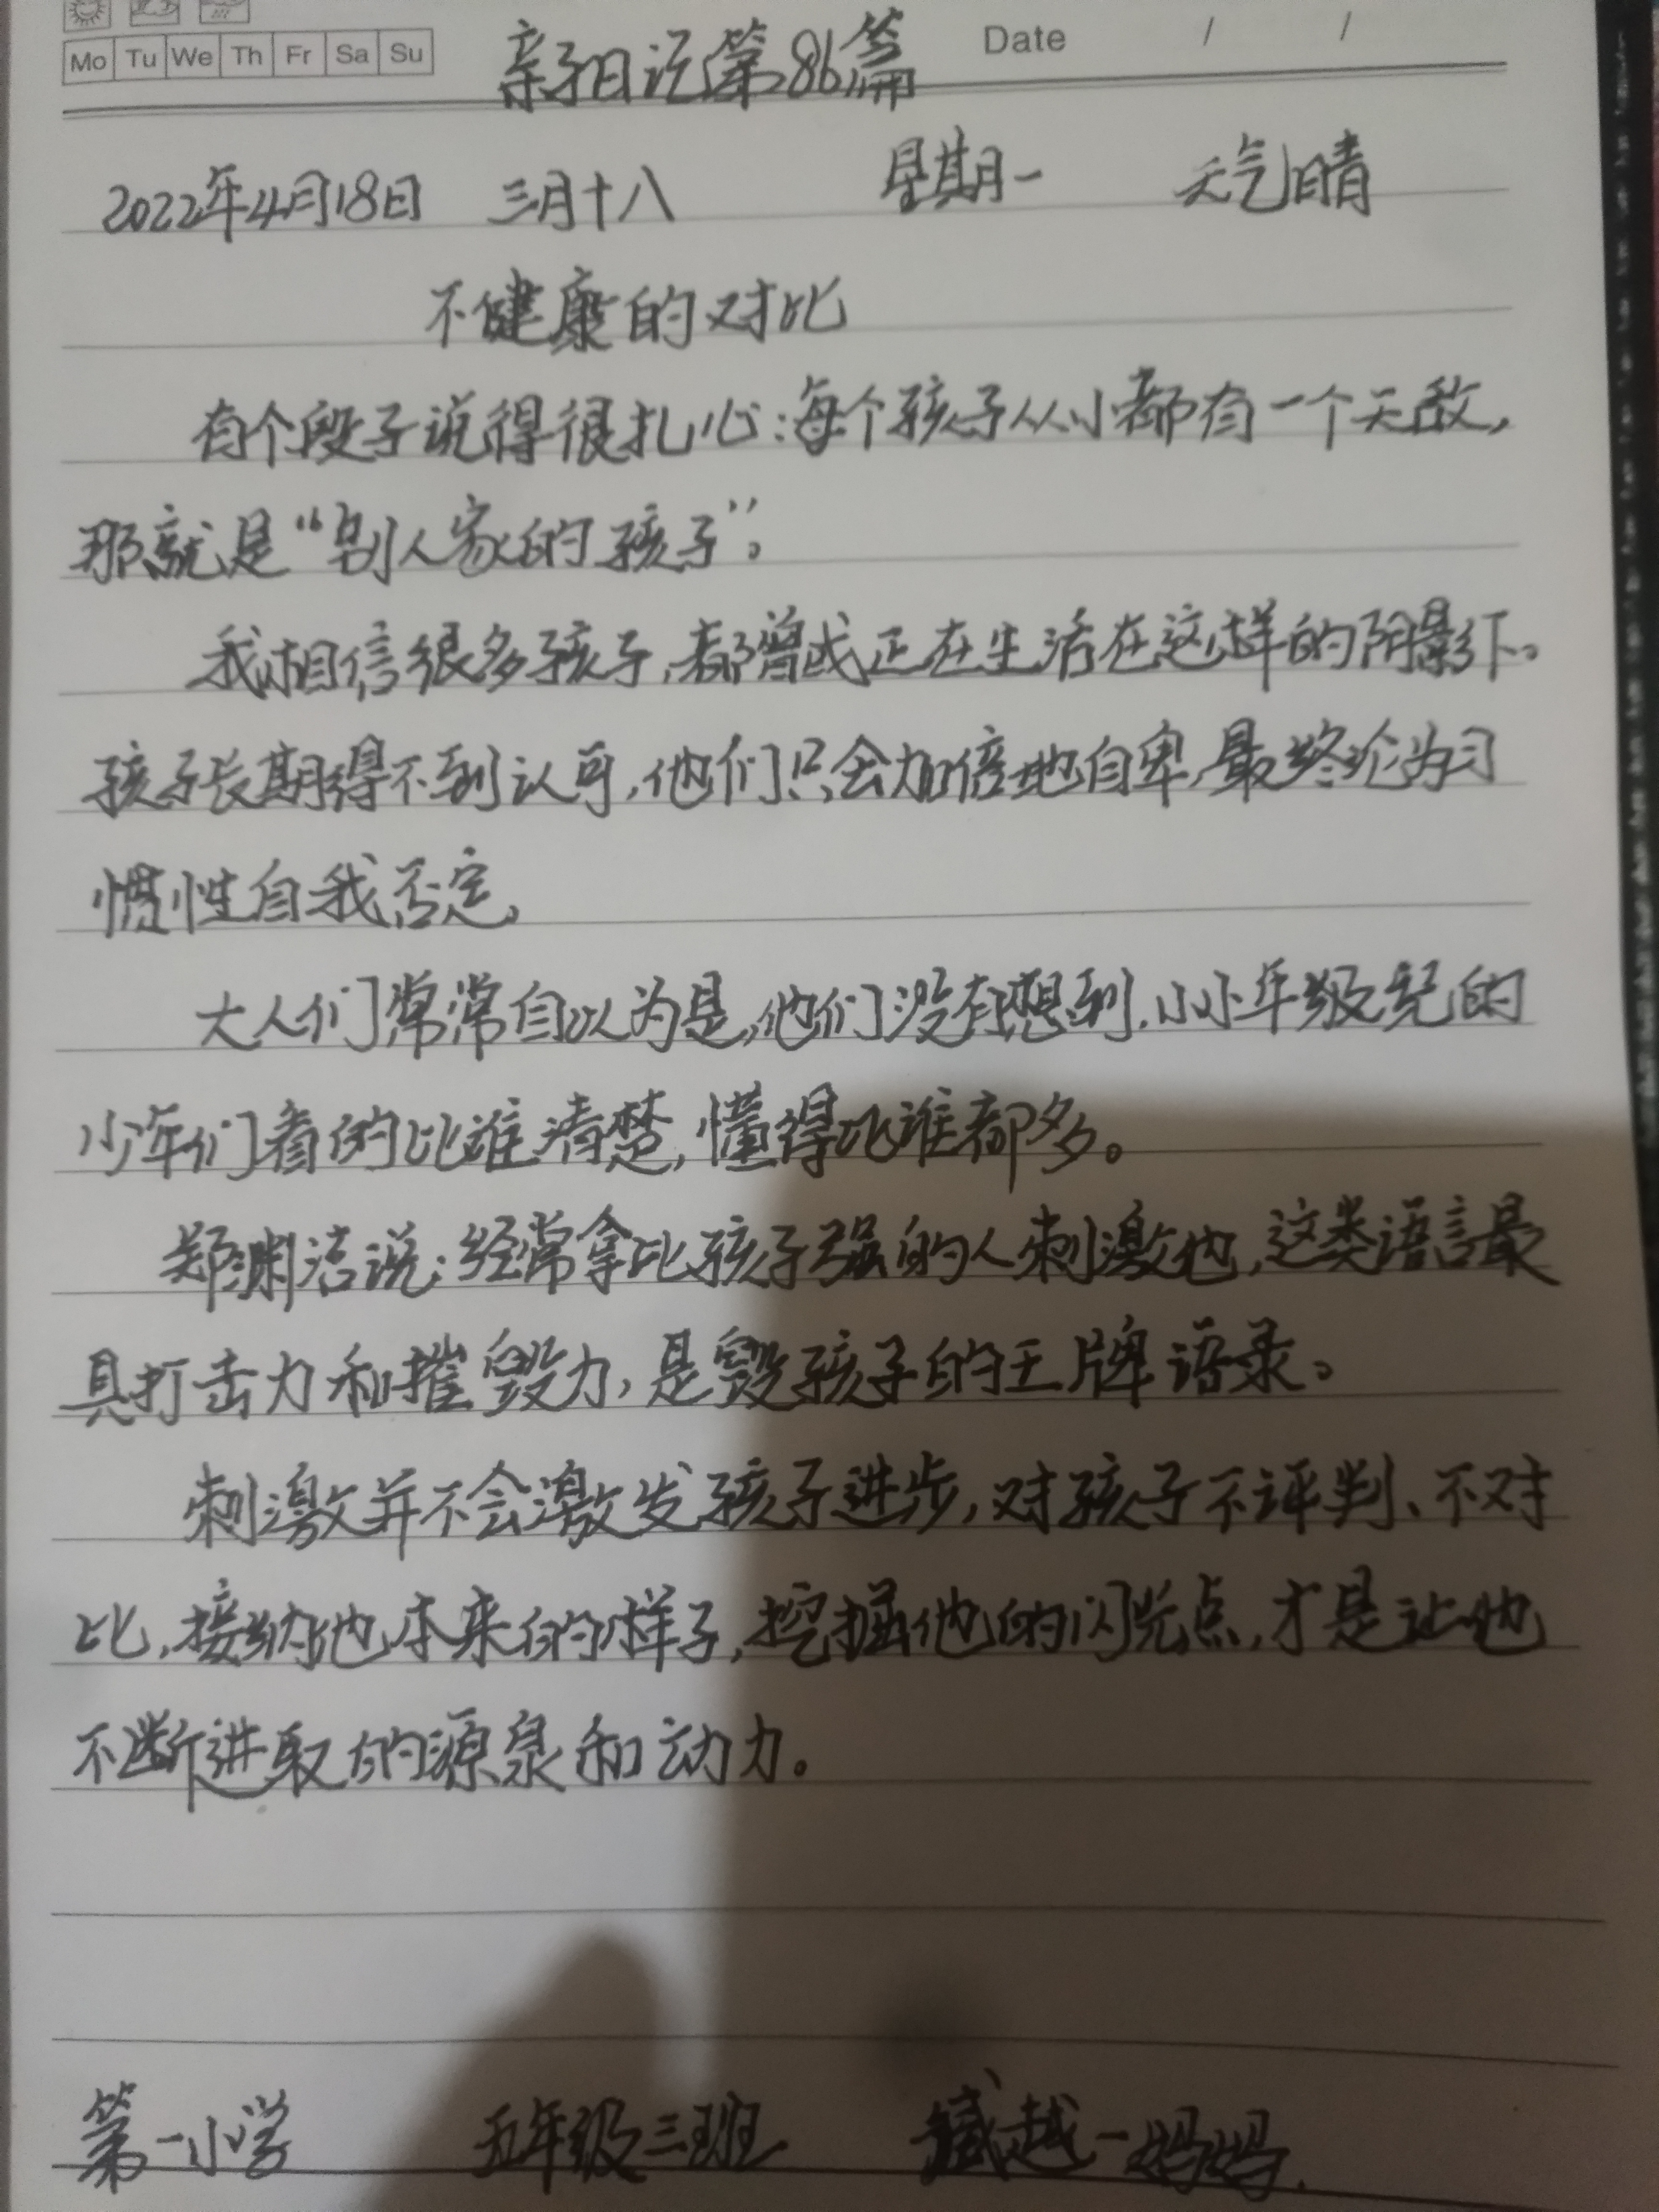 Mo Tu We Th Fr Sa Su
亲子日记第86篇
Date / /
2022年4月18日 三月十八 星期一 天气晴
不健康的对比
有个段子说得很扎心:每个孩子从小都有一个天敌,
那就是“别人家的孩子”。
我相信很多孩子,都曾或正在生活在这样的阴影下。
孩子长期得不到认可,他们只会加倍地自卑,最终沦为习
惯性自我否定,
大人们常常自以为是,他们没有想到,小小年级纪的
少年们看的比谁清楚,懂得比谁都多。
郑渊洁说:经常拿比孩子强的人刺激他,这类语言最
具打击力和摧毁力,是毁孩子的王牌语录。
刺激并不会激发孩子进步,对孩子不评判、不对
比,接纳他本来的样子,挖掘他的闪光点,才是让他
不断进取的源泉和动力。
第一小学 五年级三班 越一妈妈.